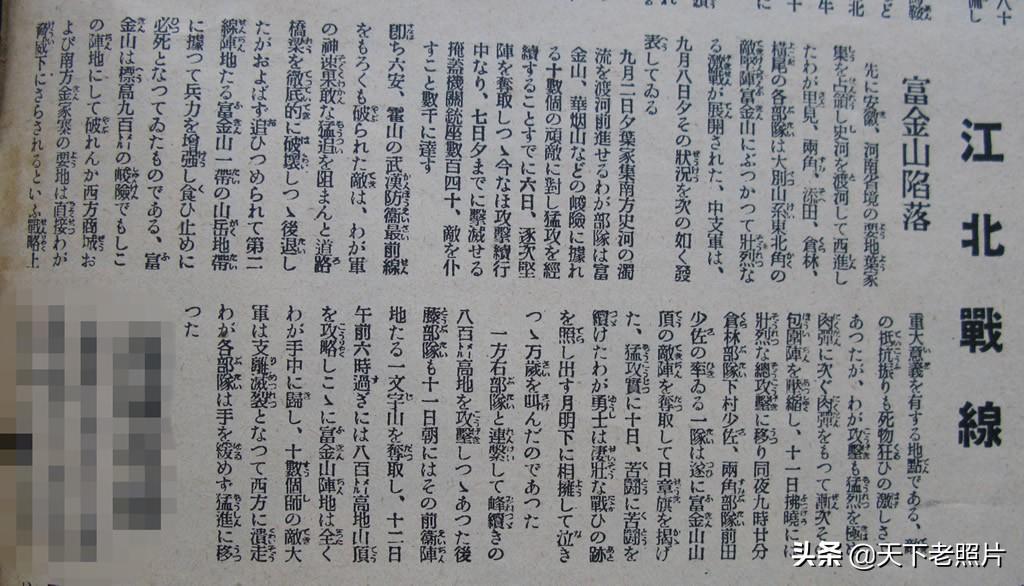 江北戰線
富金山陷落
先に安徽、河南省境の要地葉家
集を占領し史河を渡河して西進し
たわが里見、兩角、添田、倉林、
橫尾の各部隊は大別山系東北角の
敵堅陣富金山にぶつかつて壯烈な
る激戰が展開された、中支軍は、
九月八日夕その狀況を次の如く發
表してゐる
九月二日夕葉家集南方史河の濁
流を渡河前進せるわが部隊は富
金山、華烟山などの峻險に據れ
る十數個の頑敵に對し猛攻を經
續することすでに六日、逐次堅
陣を奪取しつゝ今なほ攻擊續行
中なり、七日夕までに擊滅せる
掩蓋機關銃座數百四十、敵を仆
すこと數千に達す
卽ち六安、霍山の武漢防衞最前線
をもろくも破られた敵は、わが軍
の神速果敢な猛追を阻まんと道路
橋梁を徹底的に破壞しつゝ後退し
たがおよばず追ひつめられて第二
線陣地たる富金山一帶の山岳地帶
に據つて兵力を增强し食ひ止めに
必死となつてゐたものである、富
金山は標高九百㍍の峻險でもしこ
の陣地にして破れんか西方商城お
よび南方金家寨の要地は直接わが
脅威下にさらされるといふ戰略上
重大意義を有する地點である、
の抵抗振りも死物狂ひの激しさで
あつたが、わが攻擊も猛烈を極め
肉彈に次ぐ肉彈をもつて漸次その
包圍陣を壓縮し、十一日拂曉には
壯烈な總攻擊に移り同夜九時廿分
倉林部隊下村少佐、兩角部隊前田
少佐の率ゐる一隊は遂に富金山山
頂の敵陣を奪取して日章旗を揭げ
た、猛攻實に十日、苦鬪に苦鬪を
續けたわが勇士は凄壯な戰ひの跡
を照し出す月明下に相擁して泣き
つゝ万歲を叫んだのであつた
一方右部隊と連繫して峰續きの
八百㍍高地を攻擊しつゝあつた後
藤部隊も十一日朝にはその前衞陣
地たる一文字山を奪取し、十二日
午前六時過ぎには八百㍍高地山頂
を攻略しこゝに富金山陣地は全く
わが手中に歸し、十數個師の敵大
軍は支離滅裂となつて西方に潰走
わが各部隊は手を緩めず猛進に移
つた
头条 @天下老照片